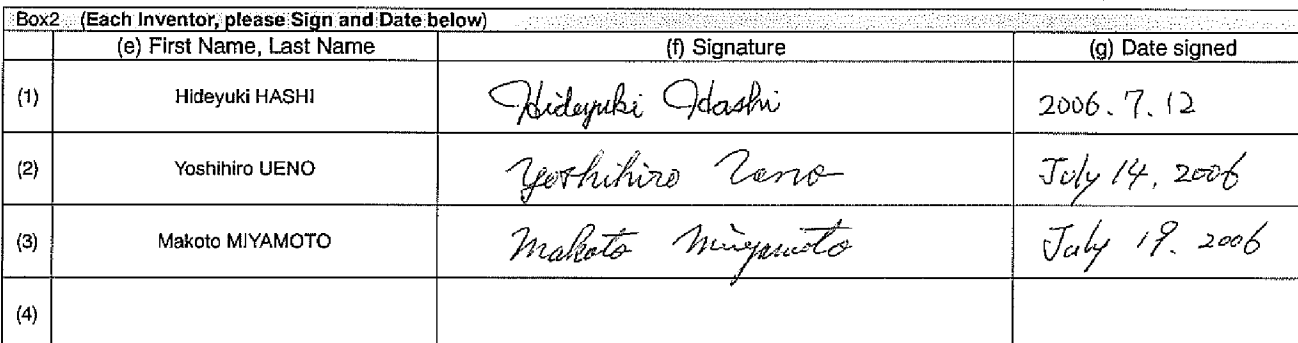 Box2 (Each Inventor, please Sign and Date below)
(e) First Name, Last Name (f) Signature (g) Date signed
(1) Hideyuki HASHI Hideyuki Hashi 2006.7.12
(2) Yoshihiro UENO Yoshihiro Ueno July 14, 2006
(3) Makoto MIYAMOTO Makoto Miyamoto July 19. 2006
(4)